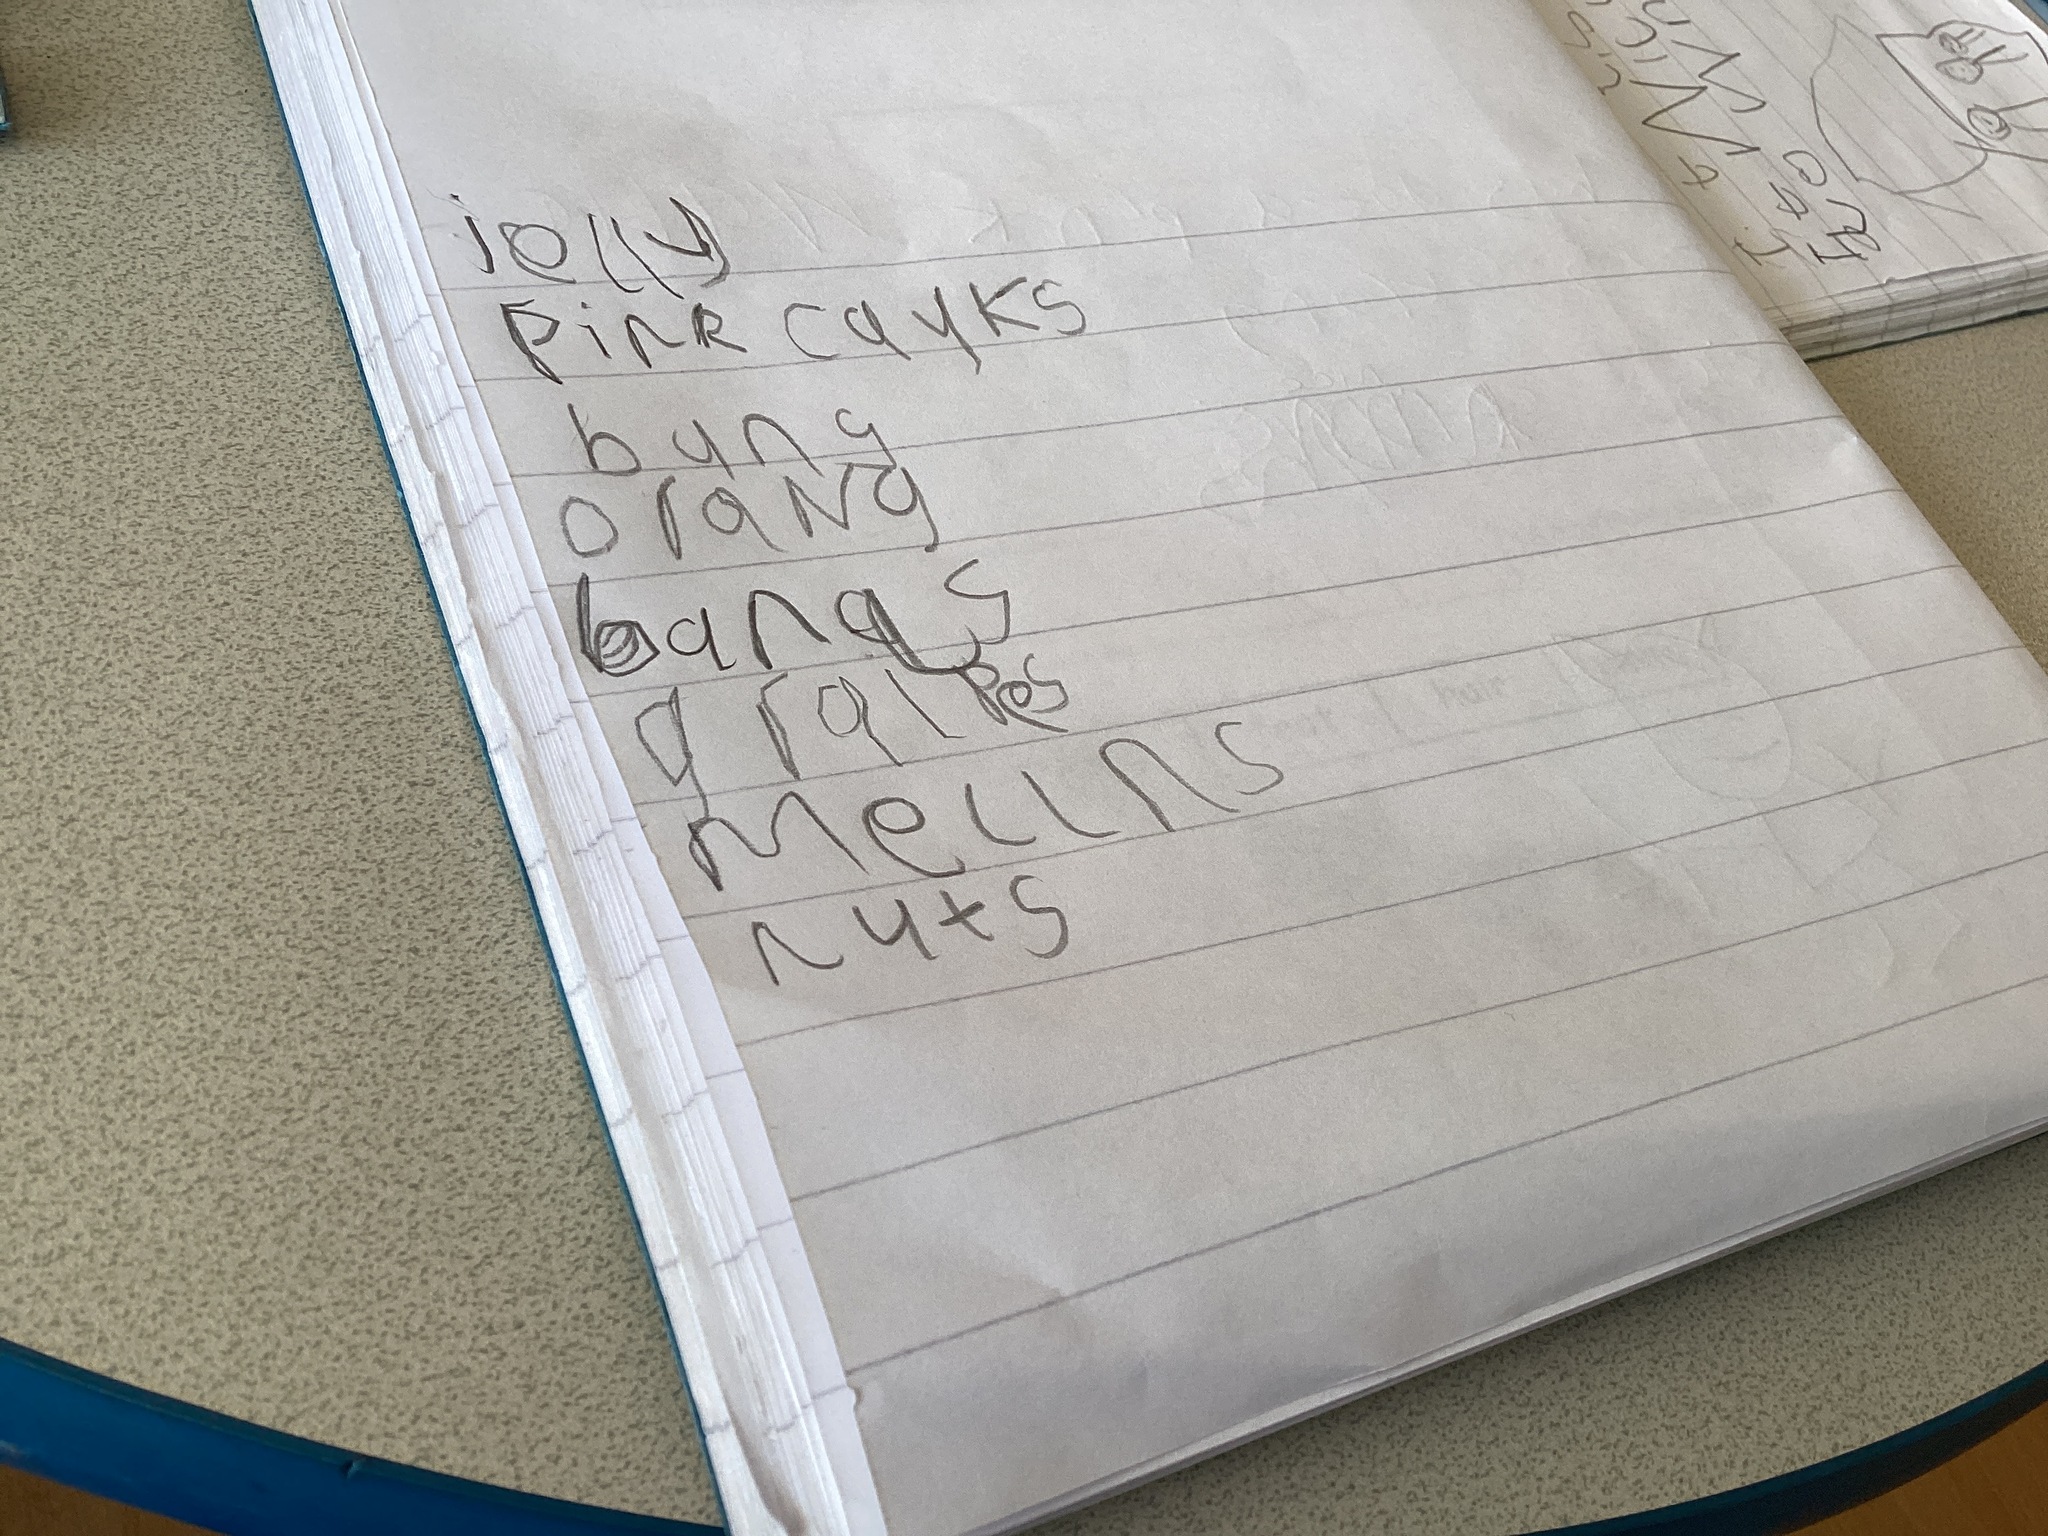 jelly
Pink cayks
buns
orang
banas
graipes
mellns
nuts